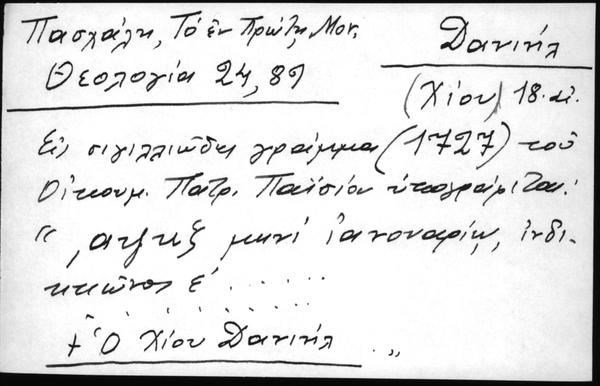 Πασχάλη, Τό ἐν Πρώτῃ Μον.
Θεολογία 24, 89
Δανιήλ
(Χίου) 18. αἰ.
Εἰς σιγιλλιῶδες γράμμα (1727) τοῦ
Οἰκουμ. Πατρ. Παϊσίου ὑπογράφεται:
" μηνί ἰαννουαρίῳ, ἰνδι-
κτιῶνος ε' . . . . . .
+ Ὁ Χίου Δανιήλ . "